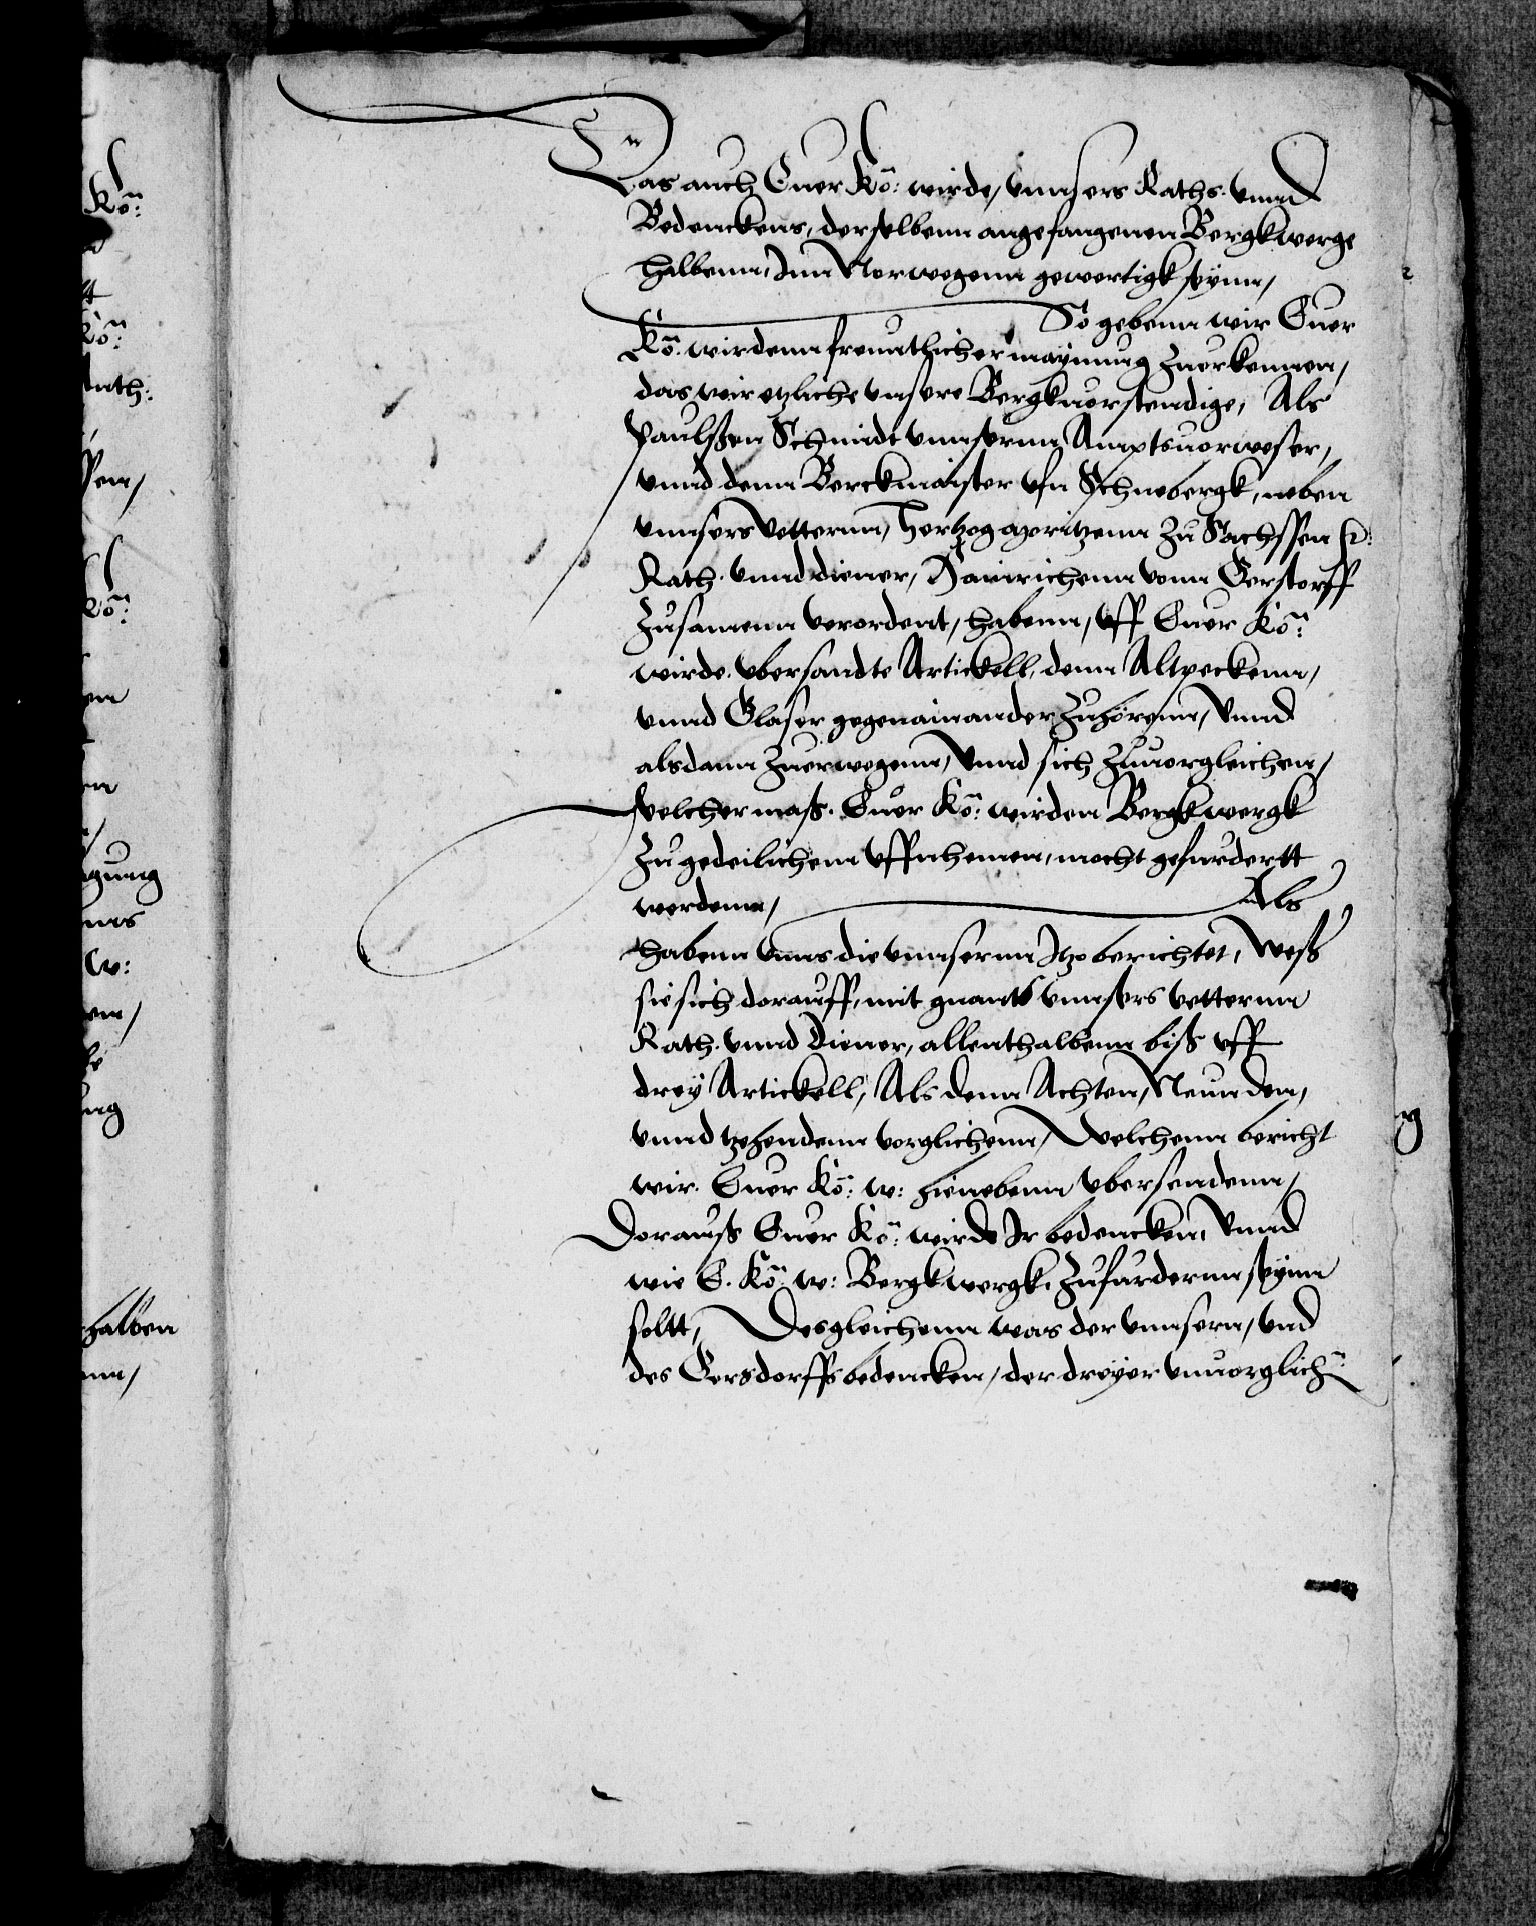 Kō:
Kō:
Rath:
ssen,
Kō:
gung
w:
ung
halben
Was auch Euer Kō: wirde, vnnsers Raths. vnnd
Bedenckens, derselbenn angefangenen Bergkwerge
halbenn, Inn Norwegenn gewertigk seynn,
So gebenn wir Euer
Kō: wirdenn freuntlicher maynung Zuerkennen,
das wir etzliche vnsere Bergkuorstendige, Als
Paulssen Schmidt vnnsernn Amptsuorweser,
vnnd denn Berckmaister vfn Schnebergk, neben
vnnsers Vetternn, Hertzog Moritzenn Zu Sachssen
Rath. vnnd diener, Hainrichenn vonn Gerstorff
Zusamenn verordent, habenn, vff Euer Kō:
wirde. vbersandte Artickell, denn Altpeckenn,
vnnd Glaser gegenainander Zuhörenn, Vnnd
alsdann Zuerwegenn, Vnnd sich Zuuorgleichen,
Welcher mass. Euer Kō: wirden Bergkwergk
Zu gedeilichenn vffnhemen, mocht gefurdertt
werdenn,
Als
habenn vnns die vnnsernn Itzo berichtet, Wess
sie sich dorauff, mit gnants vnnsers vetternn
Rath. vnnd Diener, allenthalbenn biss vff
drey Artickell, Als denn Achten, Neunden,
vnnd tzehendenn vorglichenn, Welchenn bericht
wir. Euer Kō: w: hienebenn vbersendenn,
Dorauss Euer Kō: wirde Ir bedencken, Vnnd
wie E. Kō: w: Bergkwergk, Zufurdernn seynn
soltt, Desgleichenn was der vnnsern, vnd
des Gersdorffs bedencken, der dreyer vnuorglichn